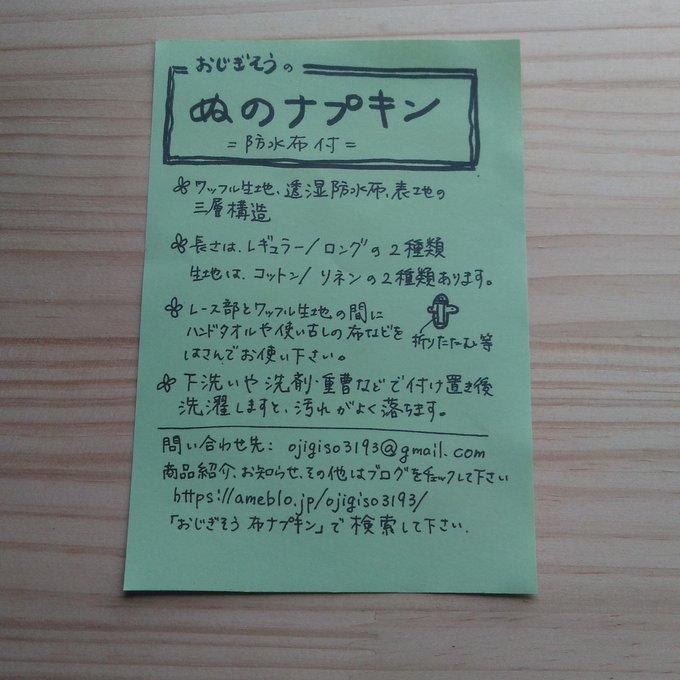 おじぎそうの
ぬのナプキン
=防水布付=
ワッフル生地、透湿防水布、表地の
三層構造
長さは、レギュラー/ロングの2種類
生地は、コットン/リネンの2種類あります。
レース部とワッフル生地の間に
ハンドタオルや使い古しの布などを
はさんでお使い下さい。
折りたたむ等
下洗いや洗剤・重曹などで付け置き後
洗濯しますと、汚れがよく落ちます。
問い合わせ先: ojigiso3193@gmail.com
商品紹介、お知らせ、その他はブログをチェックして下さい
https://ameblo.jp/ojigiso3193/
「おじぎそう 布ナプキン」で検索して下さい.